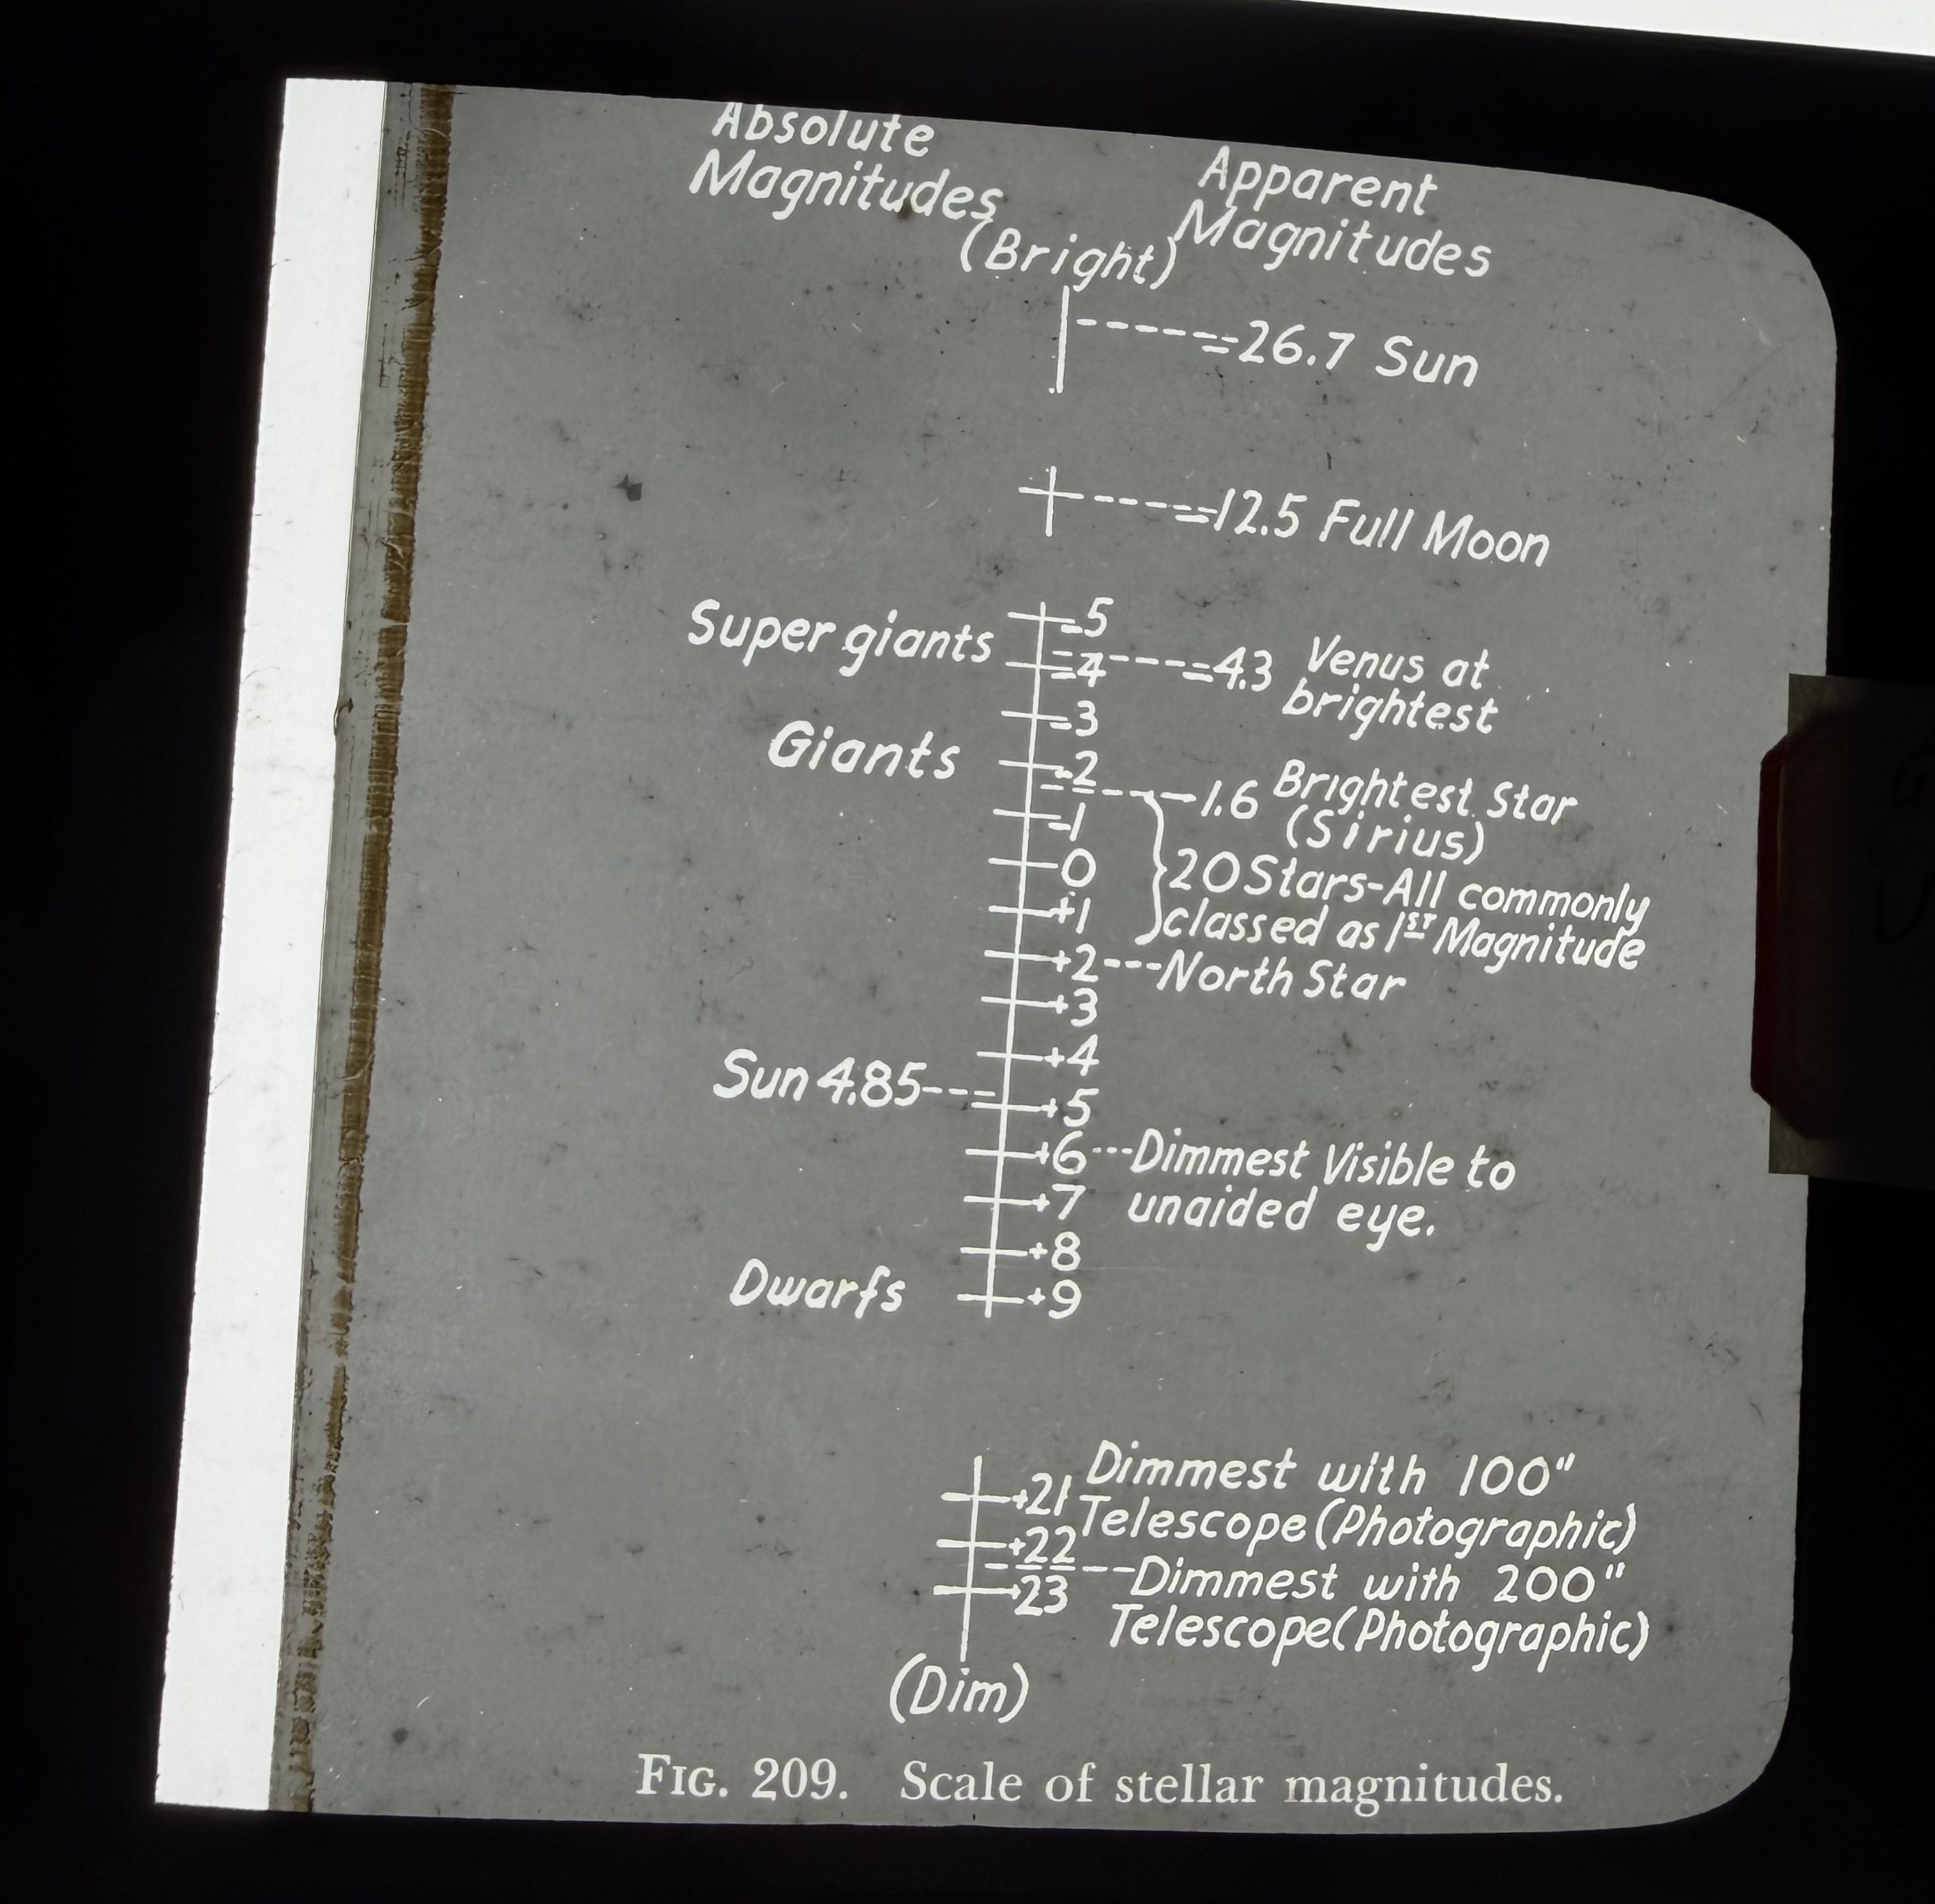 Absolute
Magnitudes
Apparent
Magnitudes
(Bright)
-26.7 Sun
-12.5 Full Moon
-5
Super giants
-4 -4.3 Venus at
brightest
-3
Giants
-2
-1.6 Brightest Star
(Sirius)
-1
0
20 Stars-All commonly
+1
classed as 1ST Magnitude
+2 North Star
+3
+4
Sun 4.85
+5
+6 Dimmest Visible to
+7 unaided eye.
+8
Dwarfs +9
Dimmest with 100"
+21 Telescope (Photographic)
+22
Dimmest with 200"
+23
Telescope (Photographic)
(Dim)
FIG. 209. Scale of stellar magnitudes.